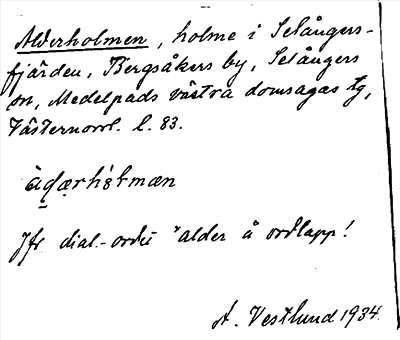 Alderholmen, holme i Selångers-
fjärden, Bergsåkers by, Selångers
sn, Medelpads västra domsagas tg,
Västernorrl. l. 83.
Jfr dial.-ordet alder å ordlapp!
A. Vestlund 1934.